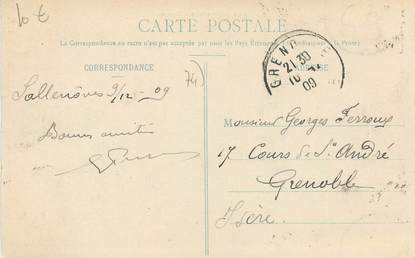 10 €
CARTE POSTALE
La Correspondance au recto n'est pas acceptée par tous les Pays Étrangers
CORRESPONDANCE
(74)
Sallenôves 9/12-09
Bonnes amitiés
GRENO
21 30
10
09
Monsieur Georges Ferroux
17 Cours de St André
Grenoble
Isère